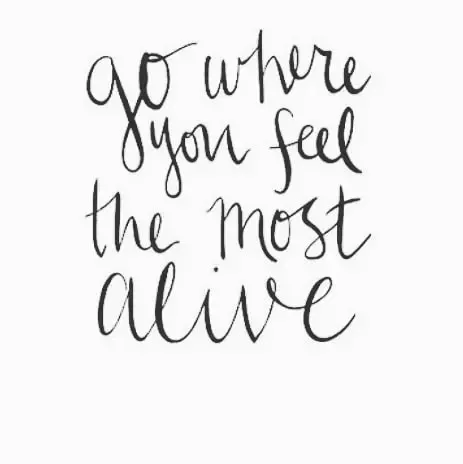 go where
you feel
the most
alive